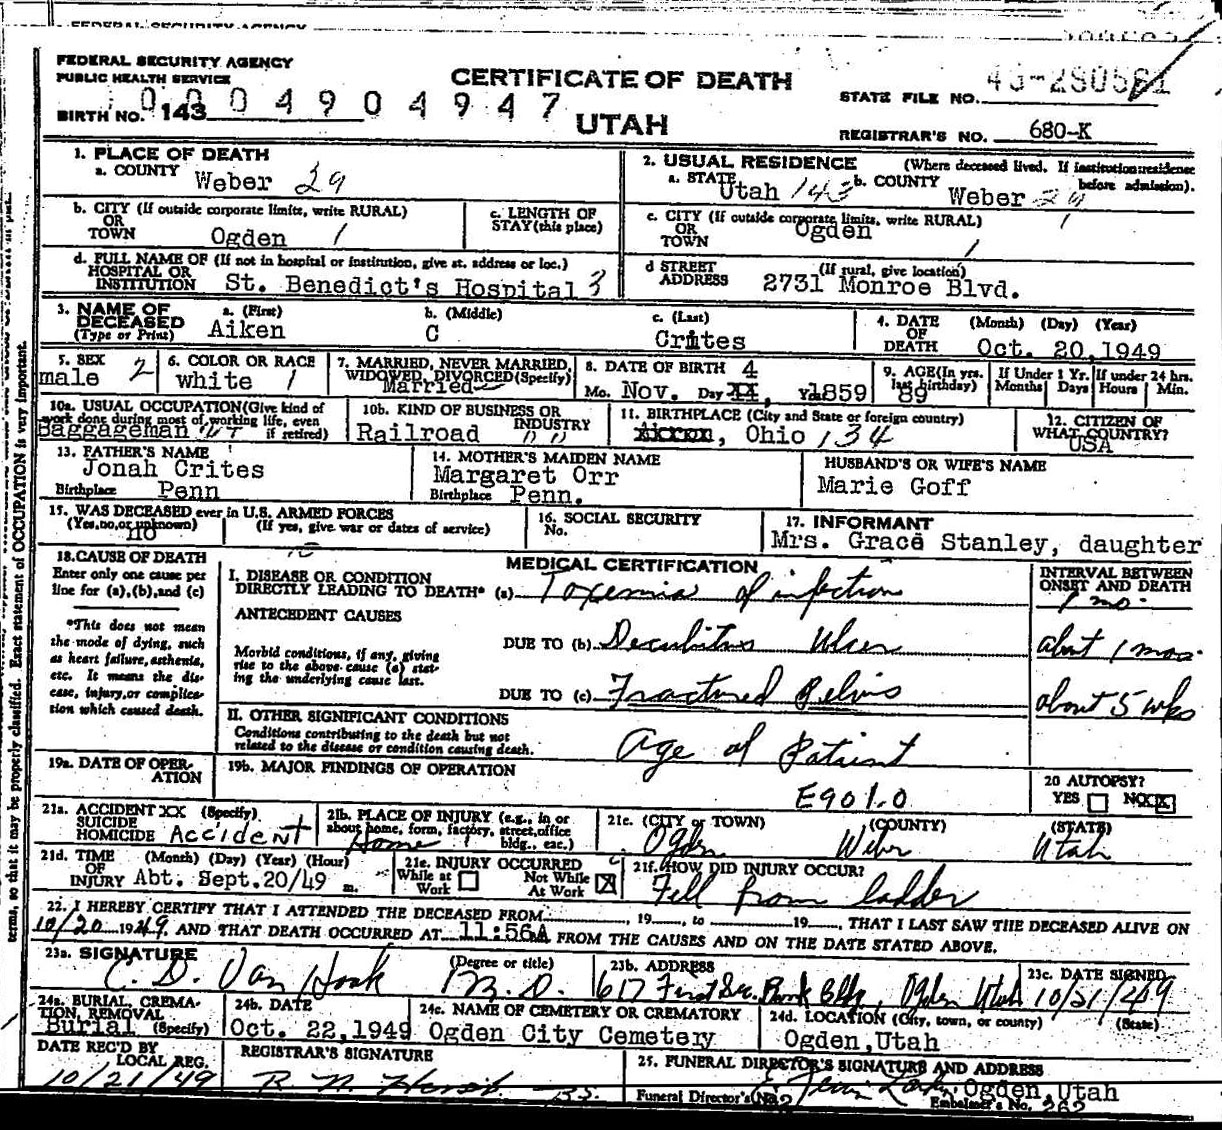 FEDERAL SECURITY AGENCY
FEDERAL SECURITY AGENCY
PUBLIC HEALTH SERVICE
CERTIFICATE OF DEATH
STATE FILE NO.
BIRTH NO. 143
0004904947
UTAH
REGISTRAR'S NO. 680-K
1. PLACE OF DEATH
a. COUNTY Weber 29
2. USUAL RESIDENCE (Where deceased lived. If institution:residence before admission).
a. STATE Utah 143 b. COUNTY Weber 29
b. CITY (If outside corporate limits, write RURAL)
OR
TOWN Ogden 1
c. LENGTH OF
STAY (this place)
c. CITY (If outside corporate limits, write RURAL)
OR
TOWN Ogden 1
d. FULL NAME OF (If not in hospital or institution, give st. address or loc.)
HOSPITAL OR
INSTITUTION St. Benedict's Hospital 3
d STREET (If rural, give location)
ADDRESS 2731 Monroe Blvd.
3. NAME OF DECEASED (Type or Print)
a. (First) Aiken
b. (Middle) C
c. (Last) Crites
4. DATE OF DEATH (Month) (Day) (Year)
Oct. 20,1949
5. SEX male 2
6. COLOR OR RACE white 1
7. MARRIED, NEVER MARRIED, WIDOWED, DIVORCED (Specify)
Married
8. DATE OF BIRTH 4
Mo. Nov. Day Yr. 1859
9. AGE (In yrs. last birthday) 89
If Under 1 Yr. Months Days
If under 24 hrs. Hours Min.
10a. USUAL OCCUPATION (Give kind of work done during most of working life, even if retired)
Baggageman
10b. KIND OF BUSINESS OR INDUSTRY
Railroad
11. BIRTHPLACE (City and State or foreign country)
Akron, Ohio 134
12. CITIZEN OF WHAT COUNTRY?
USA
13. FATHER'S NAME
Jonah Crites
Birthplace Penn
14. MOTHER'S MAIDEN NAME
Margaret Orr
Birthplace Penn.
HUSBAND'S OR WIFE'S NAME
Marie Goff
15. WAS DECEASED ever in U.S. ARMED FORCES
(Yes,no,or unknown) (If yes, give war or dates of service)
no
16. SOCIAL SECURITY
No.
17. INFORMANT
Mrs. Grace Stanley, daughter
18. CAUSE OF DEATH
Enter only one cause per
line for (a),(b),and (c)
*This does not mean
the mode of dying, such
as heart failure, asthenia,
etc. It means the dis-
ease, injury, or complica-
tion which caused death.
MEDICAL CERTIFICATION
INTERVAL BETWEEN
ONSET AND DEATH
I. DISEASE OR CONDITION
DIRECTLY LEADING TO DEATH* (a) Toxemia of infection 1 mo.
ANTECEDENT CAUSES
Morbid conditions, if any, giving
rise to the above cause (a) stat-
ing the underlying cause last.
DUE TO (b) Decubitus Ulcer about 1 mos.
DUE TO (c) Fractured Pelvis about 5 wks
II. OTHER SIGNIFICANT CONDITIONS
Conditions contributing to the death but not
related to the disease or condition causing death.
Age of Patient
19a. DATE OF OPER-
ATION
19b. MAJOR FINDINGS OF OPERATION
E901.0
20 AUTOPSY?
YES NO X
21a. ACCIDENT XX (Specify)
SUICIDE
HOMICIDE Accident
21b. PLACE OF INJURY (e.g., in or
about home, form, factory, street, office
bldg., eac.)
Home
21c. (CITY or TOWN) (COUNTY) (STATE)
Ogden Weber Utah
21d. TIME (Month) (Day) (Year) (Hour)
OF
INJURY Abt. Sept.20/49 m.
21e. INJURY OCCURRED
While at Work Not While At Work X
21f. HOW DID INJURY OCCUR?
Fell from ladder
22. I HEREBY CERTIFY THAT I ATTENDED THE DECEASED FROM , 19 , to 19 , THAT I LAST SAW THE DECEASED ALIVE ON
10/20 1949 AND THAT DEATH OCCURRED AT 11:56A FROM THE CAUSES AND ON THE DATE STATED ABOVE.
23a. SIGNATURE (Degree or title)
C. D. Van Hook M.D.
23b. ADDRESS
617 First Sec. Bank Bldg, Ogden Utah
23c. DATE SIGNED
10/21/49
24a. BURIAL, CREMA-
TION, REMOVAL
Burial (Specify)
24b. DATE
Oct. 22,1949
24c. NAME OF CEMETERY OR CREMATORY
Ogden City Cemetery
24d. LOCATION (City, town, or county) (State)
Ogden,Utah
DATE REC'D BY
LOCAL REG.
10/21/49
REGISTRAR'S SIGNATURE
25. FUNERAL DIRECTOR'S SIGNATURE AND ADDRESS
Ogden,Utah
Funeral Director's (No.
Embalmer's No. 262
terms, so that it may be properly classified. Exact statement of OCCUPATION is very important.